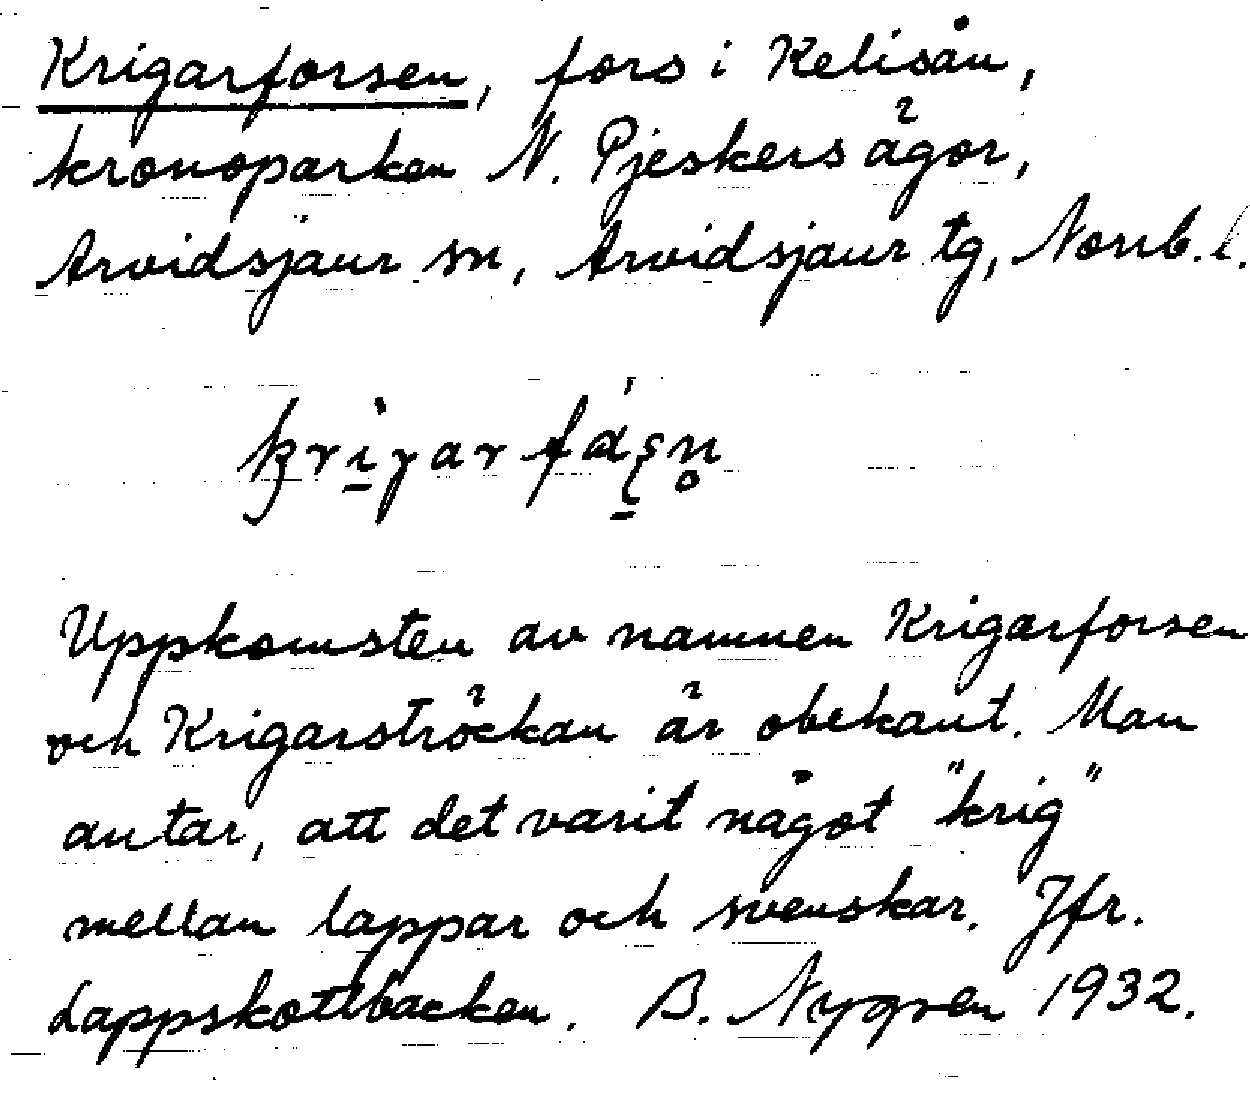 Krigarforsen, fors i Kelisån,
kronoparken N. Pjeskers ägor,
Arvidsjaur sn, Arvidsjaur tg, Norrb. l.
Uppkomsten av namnen Krigarforsen
och Krigarsträckan är obekant. Man
antar, att det varit något "krig"
mellan lappar och svenskar. Jfr.
Lappskattbacken. B. Nygren 1932.